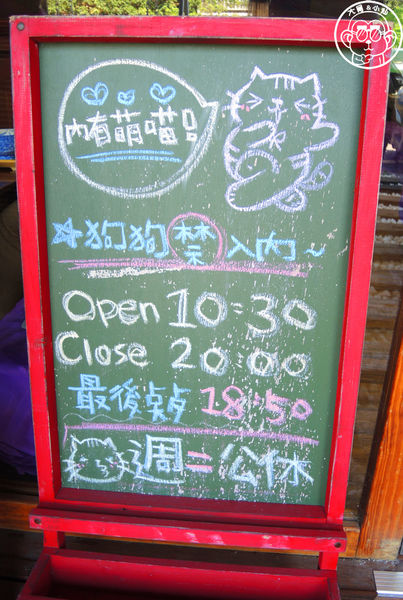 大圓&小凱
內有萌喵!
狗狗禁入內~
Open 10:30
Close 20:00
最後點 18:50
週二公休